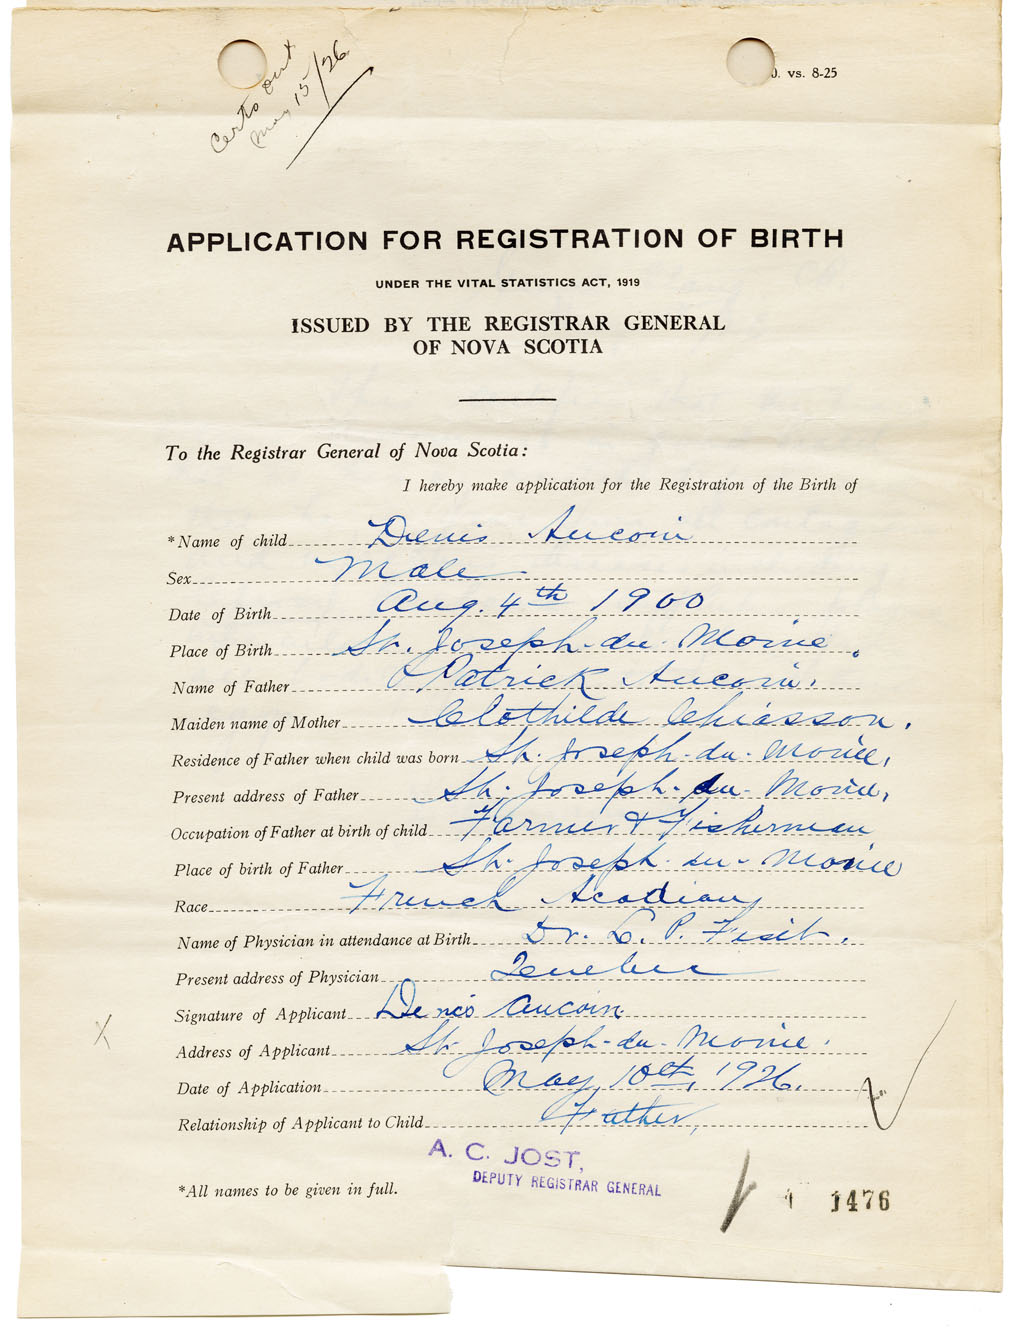 Certs out
May 15/26
. vs. 8-25
APPLICATION FOR REGISTRATION OF BIRTH
UNDER THE VITAL STATISTICS ACT, 1919
ISSUED BY THE REGISTRAR GENERAL
OF NOVA SCOTIA
To the Registrar General of Nova Scotia:
I hereby make application for the Registration of the Birth of
*Name of child Denis Aucoin
Sex Male
Date of Birth Aug. 4th 1900
Place of Birth St. Joseph-du-Moine.
Name of Father Patrick Aucoin.
Maiden name of Mother Clothilde Chiasson.
Residence of Father when child was born St. Joseph-du-Moine,
Present address of Father St. Joseph-du-Moine,
Occupation of Father at birth of child Farmer & Fisherman
Place of birth of Father St. Joseph-du-Moine
Race French Acadian
Name of Physician in attendance at Birth Dr. L. P. Fiset.
Present address of Physician
Signature of Applicant Denis Aucoin
Address of Applicant St. Joseph-du-Moine.
Date of Application May, 10th, 1926.
Relationship of Applicant to Child Father,
A. C. JOST,
DEPUTY REGISTRAR GENERAL
*All names to be given in full.
1476